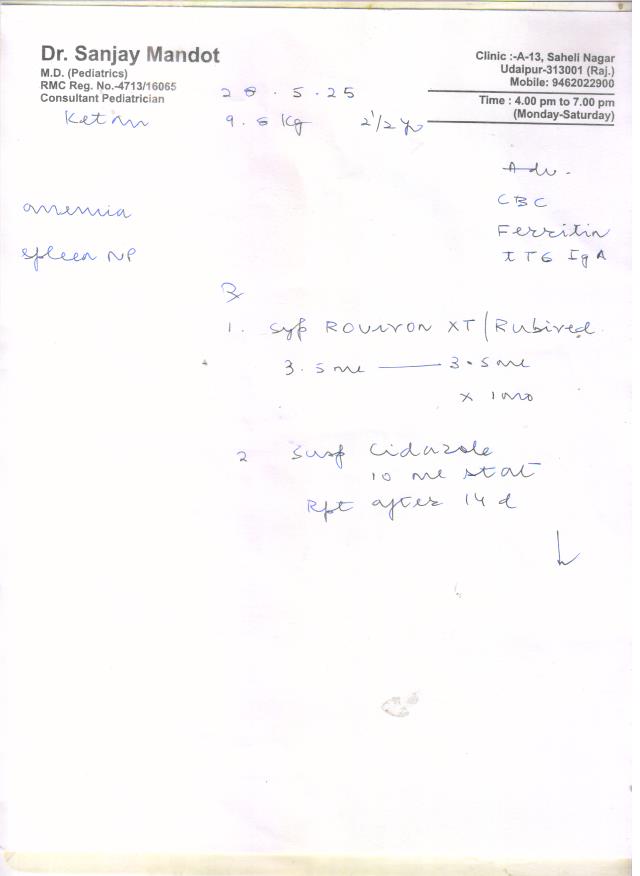 Dr. Sanjay Mandot
M.D. (Pediatrics)
RMC Reg. No.-4713/16065
Consultant Pediatrician
Clinic :-A-13, Saheli Nagar
Udaipur-313001 (Raj.)
Mobile: 9462022900
Time : 4.00 pm to 7.00 pm
(Monday-Saturday)
28.5.25
Ketan 9.6 Kg 2 1/2 yr
Adv.
CBC
Ferritin
tTG IgA
anemia
spleen NP
Rx
1. Syp XT / Rubired
3.5 ml —— 3.5 ml
x 1 mo
2 Susp Cidazole
10 ml stat
Rpt after 14 d